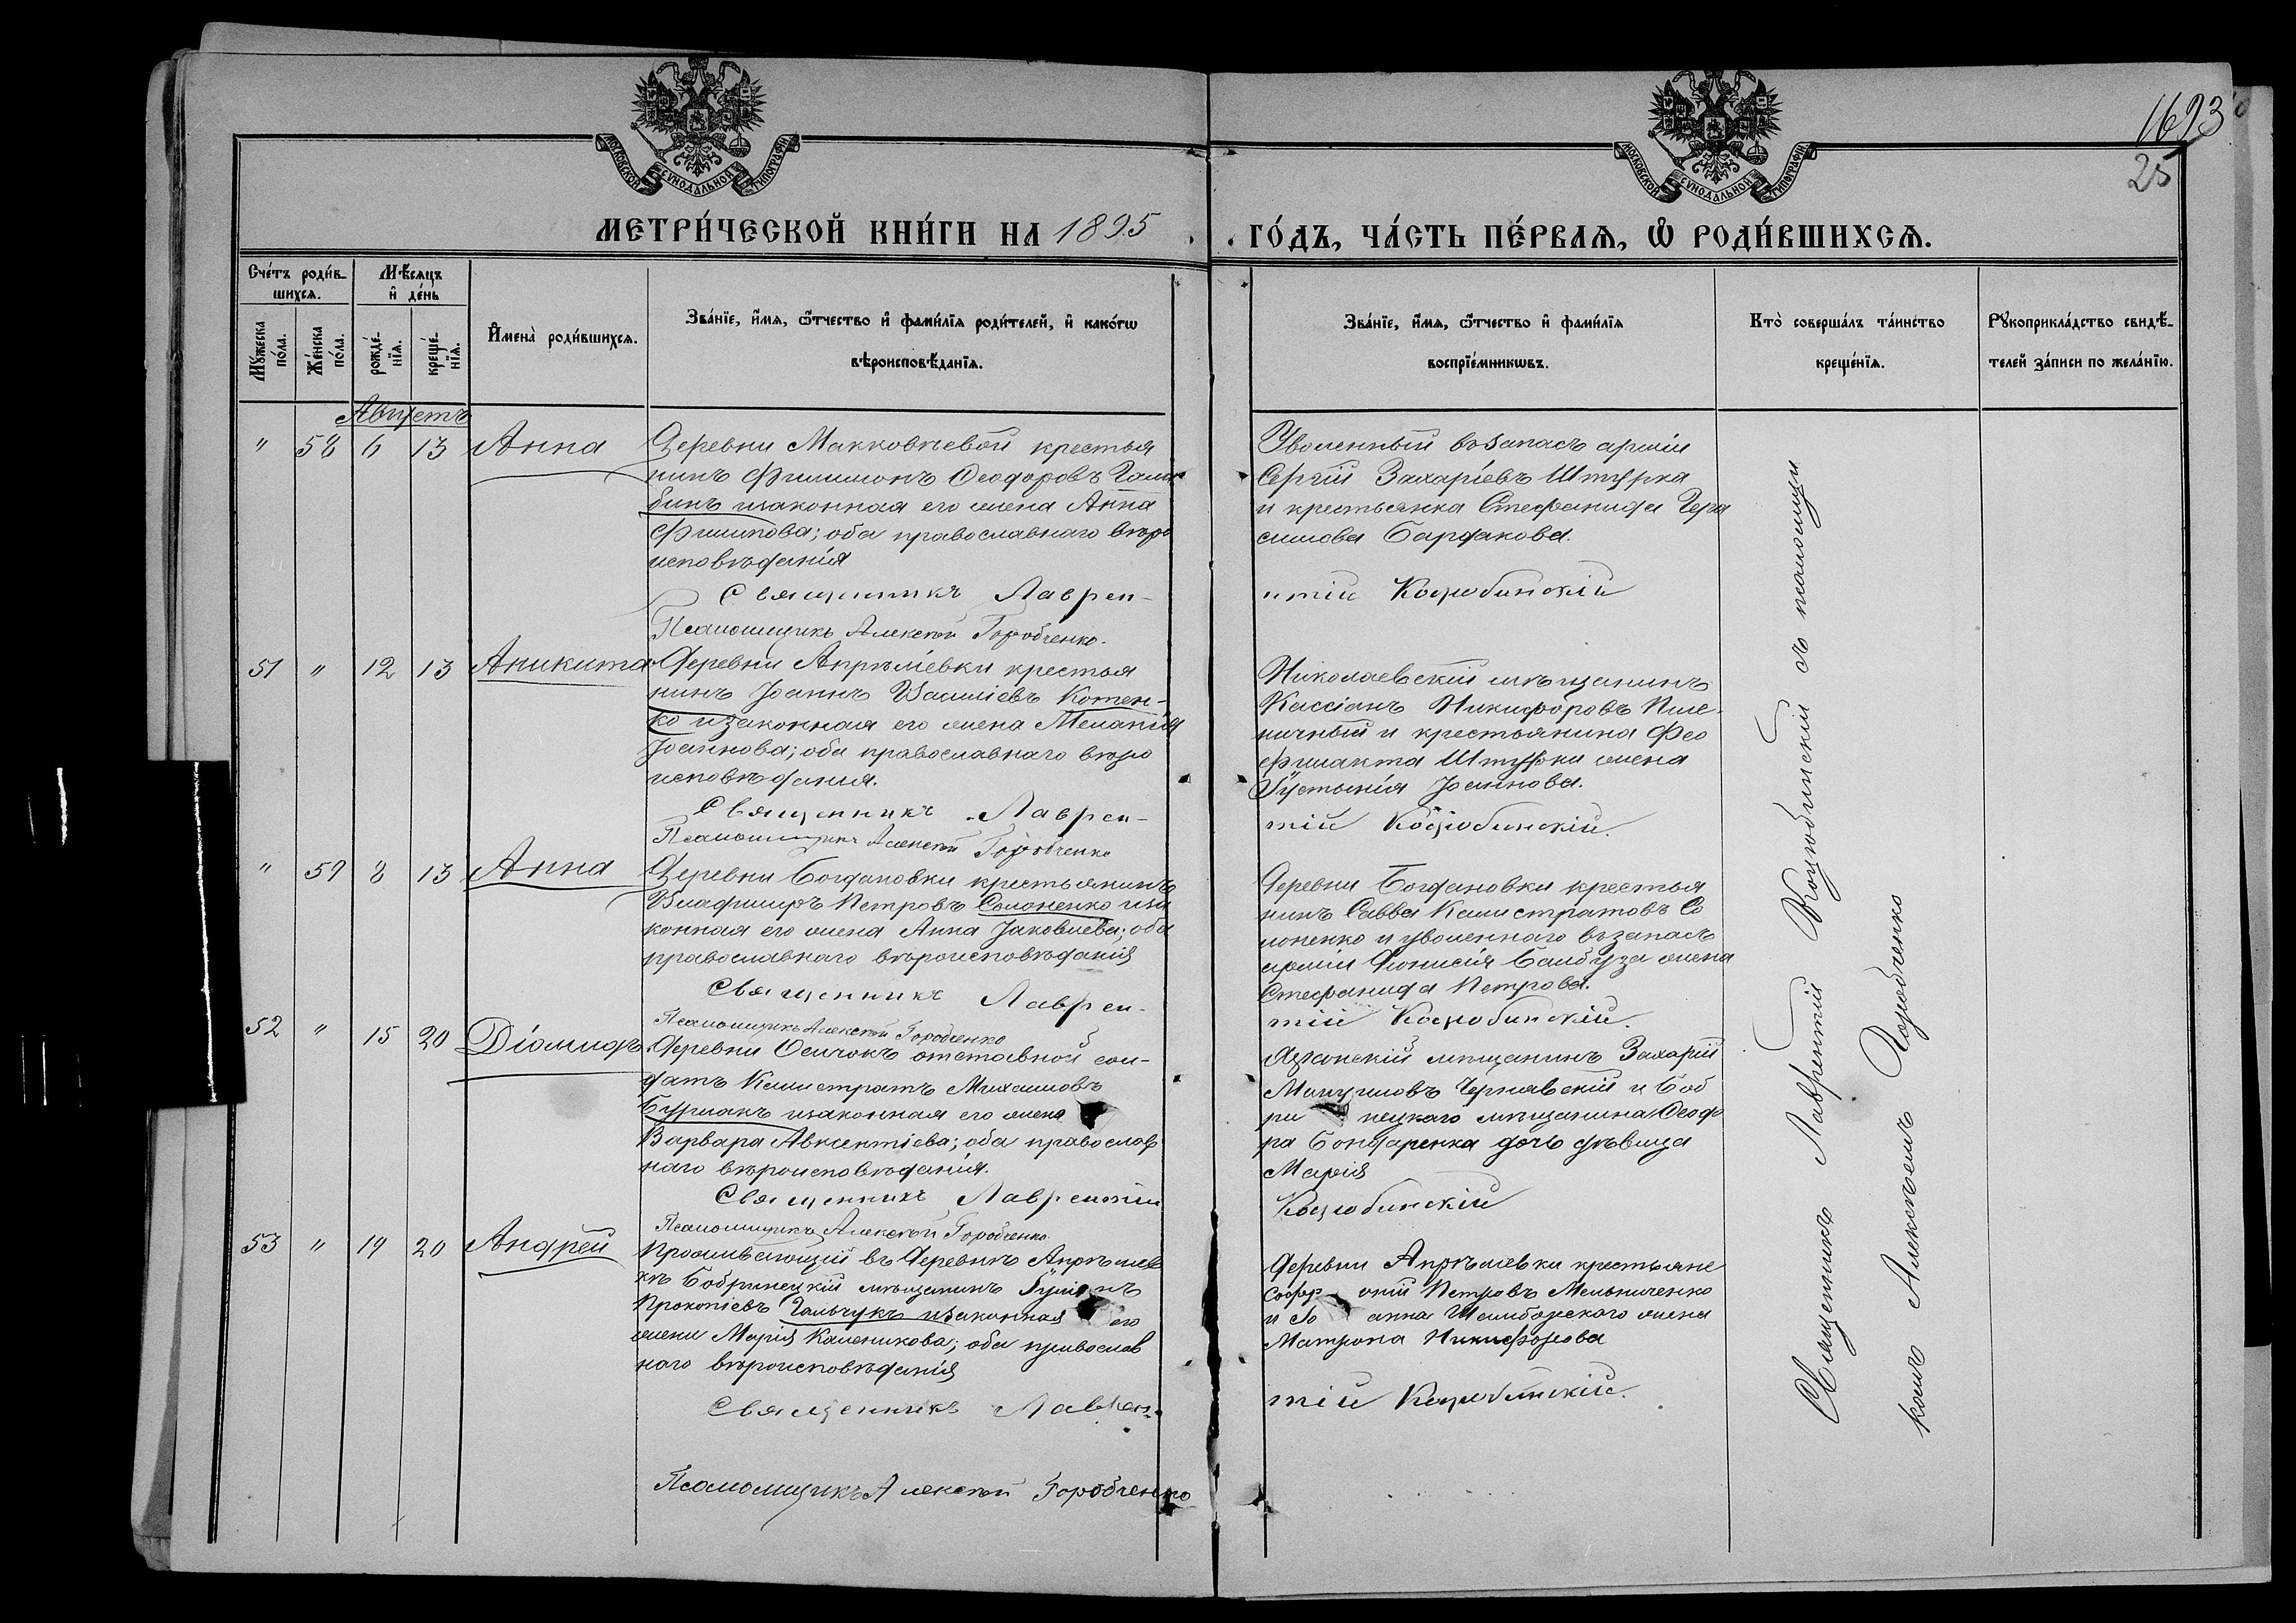 1693
25
МОСКОВСКОЙ СѴНОДАЛЬНОЙ ТИПОГРАФІИ
МОСКОВСКОЙ СѴНОДАЛЬНОЙ ТИПОГРАФІИ
МЕТРИ́ЧЕСКОЙ КНИ́ГИ НА 1895 ГО́ДЪ, ЧА́СТЬ ПЕ́РВАЯ, Ѡ РОДИ́ВШИХСЯ.
Сче́тъ роди́вшихся.
Мѣ́сяцъ и де́нь
Мꙋ́жеска по́ла.
Же́нска по́ла.
рожде́нїя.
креще́нїя.
И҆мена̀ роди́вшихся.
Зва́нїе, и҆́мя, ѻ҆́тчество и҆ фами́лїя роди́телей, и҆ како́гѡ
вѣроисповѣ́данїя.
Зва́нїе, и҆́мя, ѻ҆́тчество и҆ фами́лїя
воспрїе́мникѡвъ.
Кто̀ соверша́лъ та́инство
креще́нїя.
Рꙋкоприкла́дство свидѣ́-
телей за́писи по жела́нїю.
Августъ
" 58 6 13 Анна
Деревни Маковѣевой крестья
нинъ Филимонъ Ѳеодоровъ Гала
бинъ изаконная его жена Анна
Филипова; оба православнаго вѣро
исповѣданія
Священникъ Лаврен-
Псаломщикъ Алексѣй Горобченко.
Уволенный възапасъ арміи
Сергій Захаріевъ Штурка
и крестьянка Стефанида Гера
симова Бардакова.
нтій Коцюбинскій
51 " 12 13 Аникита
Деревни Апрѣліевки крестья
нинъ Іоаннъ Василіевъ Котен-
ко изаконная его жена Меланія
Іоаннова; оба православнаго вѣро
исповѣданія.
Священникъ Лаврен-
Псаломщикъ Алексѣй Горобченко
Николаевскій мѣщанинъ
Кассіанъ Никифоровъ Пше-
ничный и крестьянина Фео
филакта Штурки жена
Іустинія Іоаннова.
тій Коцюбинскій.
" 59 8 13 Анна
Деревни Богдановки крестьянинъ
Владиміръ Петровъ Солоненко иза
конная его жена Анна Іаковлева; оба
православнаго вѣроисповѣданія
Священникъ Лаврен-
Псаломщикъ Алексѣй Горобченко
Деревни Богдановки крестья
нинъ Савва Калистратовъ Со
лоненко и уволеннаго възапасъ
арміи Діонисія Балбуза жена
Стефанида Петрова.
тій Коцюбинскій.
52 " 15 20 Діомидъ
Деревни Осичокъ отставной сол-
датъ Калистратъ Михаиловъ
Бурлакъ изаконная его жена
Варвара Авксентіева; оба православ
наго вѣроисповѣданія.
Священникъ Лаврентій
Псаломщикъ Алексѣй Горобченко
мѣщанинъ Захарій
Чернявскій и Боб
ри нецкаго мѣщанина Ѳеодо
ра Бондаренка дочь дѣвица
Марія
Коцюбинскій
53 " 19 20 Андрей
Проживающій въ Деревнѣ Апрѣлев
кѣ Бобринецкій мѣщанинъ
Прокопіевъ Гальчукъ изаконная его
жена Марія Каленикова; оба православ
наго вѣроисповѣданія
Священникъ Лаврен-
Псаломщикъ Алексѣй Горобченко
Деревни Апрѣлевки крестьяне
Софр оній Петровъ Мельниченко
и Іо анна Шамборскаго жена
Матрона Никифорова
тій Коцюбинскій.
Священникъ Лаврентій Коцюбинскій съ псаломщи
комъ Алексѣемъ Горобченко